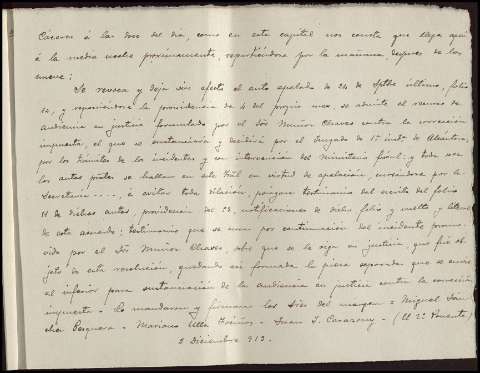 Cáceres á las doce del dia, como en esta capital nos consta que llega aqui
á la media noche proximamente, repartiendose por la mañana, despues de las
nueve;
Se revoca y deja sin efecto el auto apelado de 24 de Sptbe último, folio
y reponiendose la providencia de 4 del propio mes se admite el recurso de
audiencia en justicia formulado por el Sor Muñoz Chaves contra la corrección
impuesta, el que se sustanciará y decidirá por el Juzgado de 1ª insta de Alcántara,
por los trámites de los incidentes y con intervencion del Ministerio fiscal: y toda vez
los autos ptales se hallan en este Tbal en virtud de apelación, enviandose por la
Secretaria - - - -, á evitar toda dilación, póngase testimonio del escrito del folio
11 de dichos autos, providencia del 23, notificaciones de dicho folio y vuelto y literal
de este acuerdo; testimonio que se una por continuación del incidente promo-
vido por el Sor Muñoz Chaves, sobre que se le oiga en justicia, que fué ob-
jeto de esta resolución, quedando asi formada la pieza separada que se envie
al inferior para sustanciación de la audiencia en justicia contra la corrección
impuesta - Lo mandaron y firman los Sres del margen = Miguel Sán-
chez Pesquera - Mariano Ulla - Juan J. Carazony - (El 2º Ponente)
2 Diciembre 912.